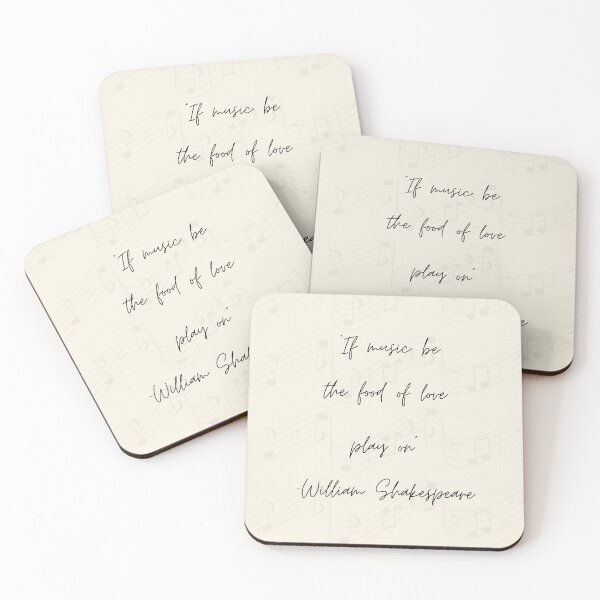 "If music be
the food of love
"If music be
the food of love
play on"
"If music be
the food of love
play on"
-William Shake
"If music be
the food of love
play on"
-William Shakespeare